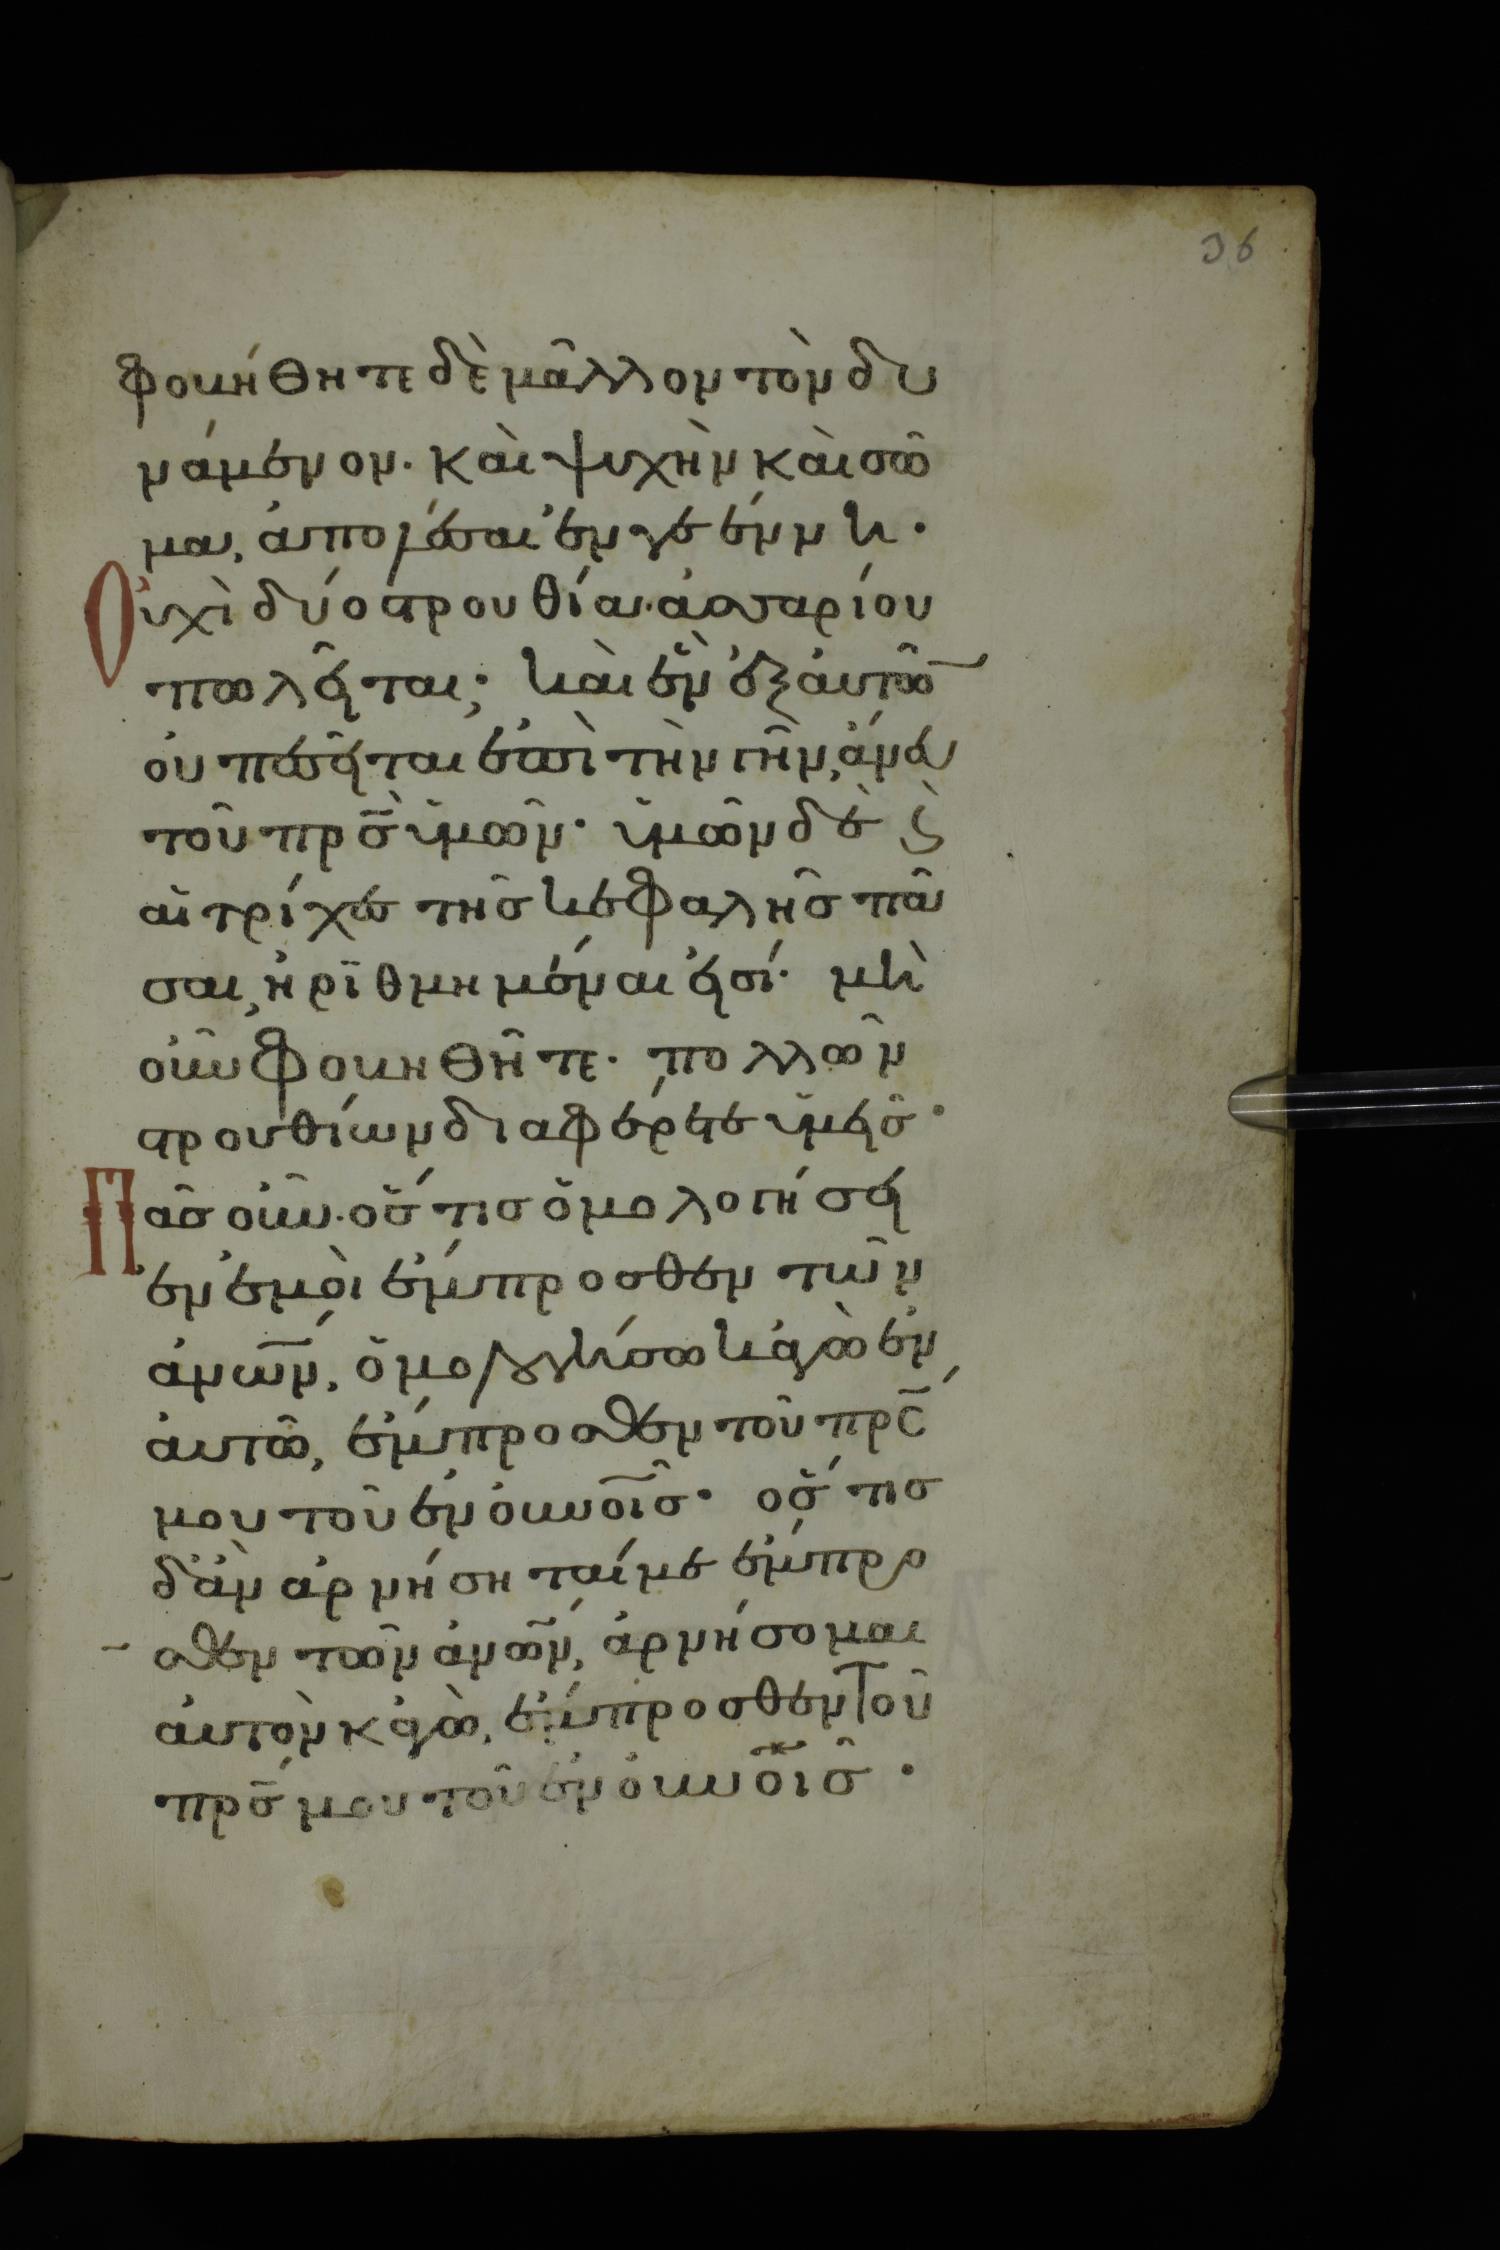 36
φοβήθητε δὲ μᾶλλον τὸν δυ
νάμενον· καὶ ψυχὴν καὶ σῶ
μα, ἀπολέσαι ἐν γεέννη·
Οὐχὶ δύο στρουθία· ἀσσαρίου
πωλεῖται; καὶ ἓν ἐξ αὐτῶ̅
οὐ πεσεῖται ἐπὶ τὴν γῆν, ἄνευ
τοῦ πρ̅ς ὑμῶν· ὑμῶν δὲ ϛ̀
αἱ τρίχες τῆς κεφαλῆς πᾶ
σαι, ἠριθμημέναι εἰσί· μὴ
οὖν φοβηθῆτε· πολλῶν
στρουθίων διαφέρετε ὑμεῖς·
Πᾶς οὖν· ὅστις ὁμολογήσει
ἐν ἐμοὶ ἔμπροσθεν τῶν
ἀνω̅ν, ὁμολογήσω κἀγὼ ἐν
αὐτῶ, ἔμπροσθεν τοῦ πρ̅ς
μου τοῦ ἐν οὐνο̅ις· ὅστις
δ' ἂν ἀρνήσηταί με ἔμπρο
σθεν τῶν ἀνω̅ν, ἀρνήσομαι
αὐτὸν κἀγὼ, ἔμπροσθεν τοῦ
πρ̅ς μου τοῦ ἐν οὐνο̅ις·